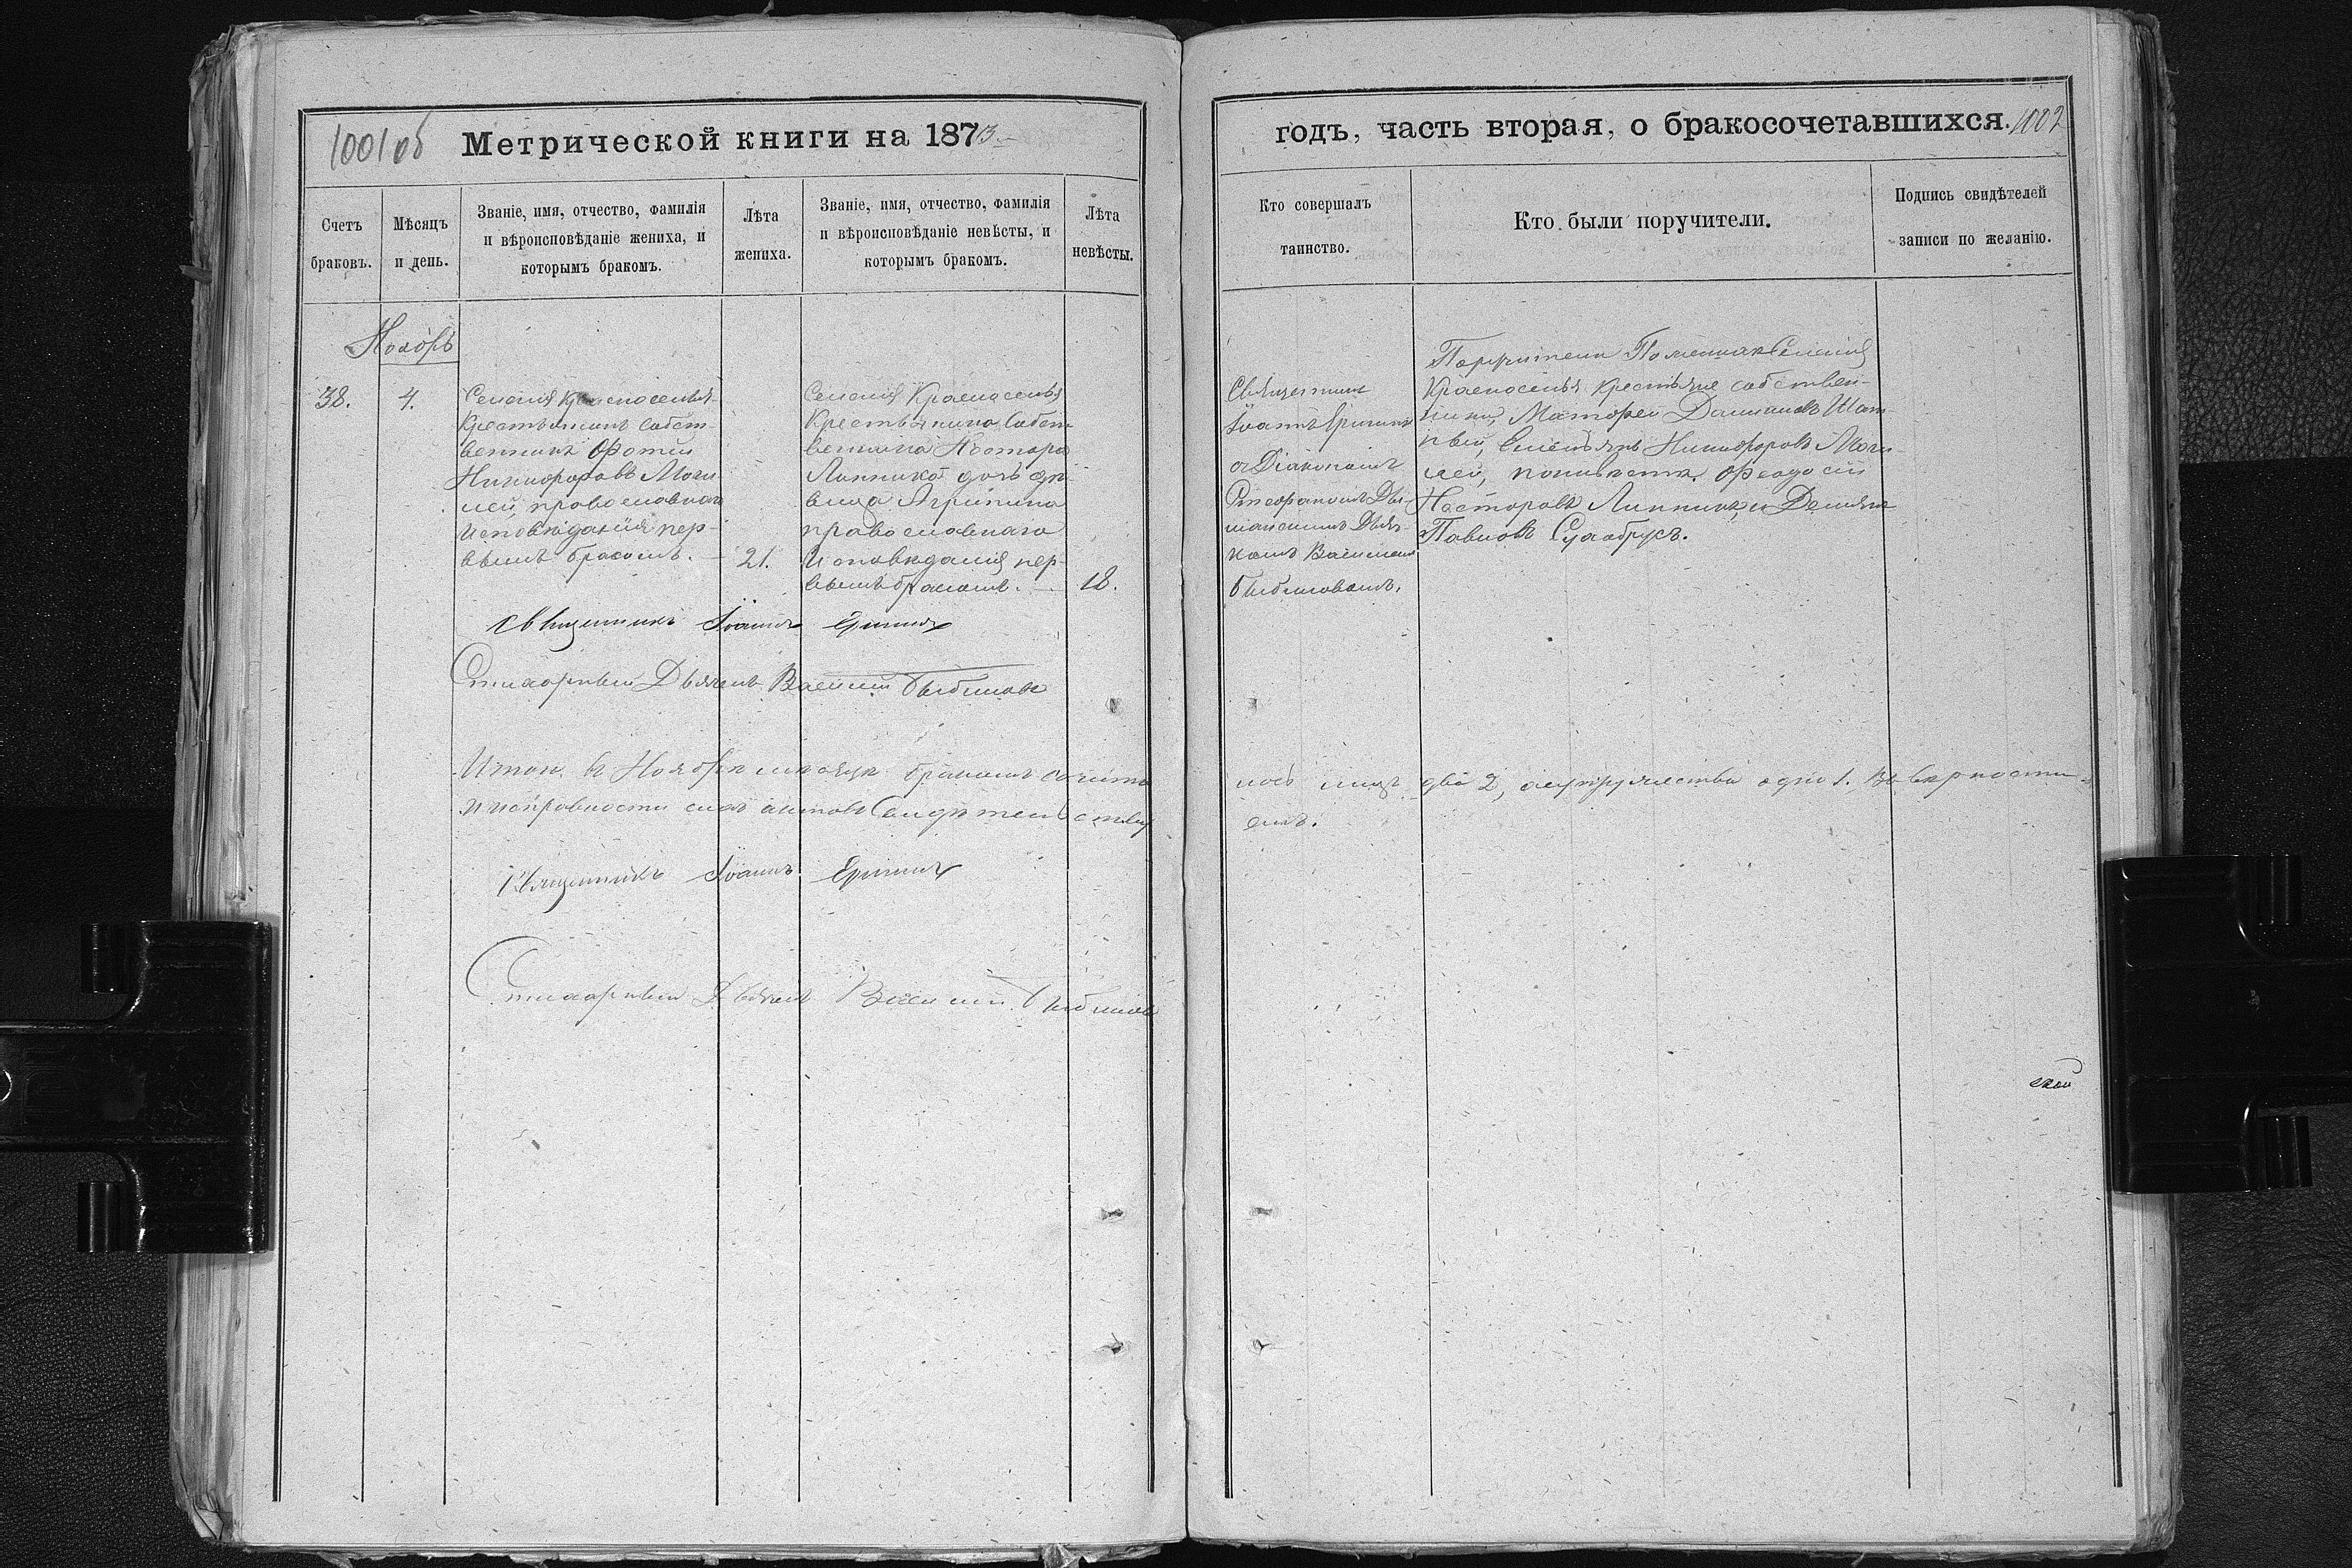 1001 об
Метрической книги на 1873
годъ, часть вторая, о бракосочетавшихся.
1002
Счетъ браковъ.
Мѣсяцъ и день.
Званіе, имя, отчество, фамилія
и вѣроисповѣданіе жениха, и
которымъ бракомъ.
Лѣта
жениха.
Званіе, имя, отчество, фамилія
и вѣроисповѣданіе невѣсты, и
которымъ бракомъ.
Лѣта
невѣсты.
Кто совершалъ
таинство.
Кто были поручители.
Подпись свидѣтелей
записи по желанію.
Ноябрь
38.
4.
Селенія Красноселья
Крестьянинъ Собст-
венникъ Фотій
Никифоровъ Моги
лей, православнаго
Исповѣданія пер-
вымъ бракомъ.
21.
Селенія Красноселья
Крестьянина Собст
венника Нестора
Линника дочь дѣ
вица Агрипина
православнаго
Исповѣданія пер-
вымъ бракомъ.
18.
Священникъ
Іоаннъ
съ Діакономъ
Стефаномъ
Дьяч-
комъ Василіемъ
Поручители
Селенія
Красноселья крестьяне собствен-
ники, Матфей
Никифоровъ Моги
лей, по невѣстѣ Феодосій
Несторовъ Линникъ, и Демьянъ
Павловъ
Священникъ Іоаннъ
Стихарный Дьячекъ Василій
Итого въ Ноябрѣ мѣсяцѣ бракомъ сочета
лось лицъ два 2, супружества одно 1. Въ вѣрности
и исправности сихъ актовъ Свидѣтельству
емъ.
Священникъ Іоаннъ
Стихарный Дьячекъ Василій
ской